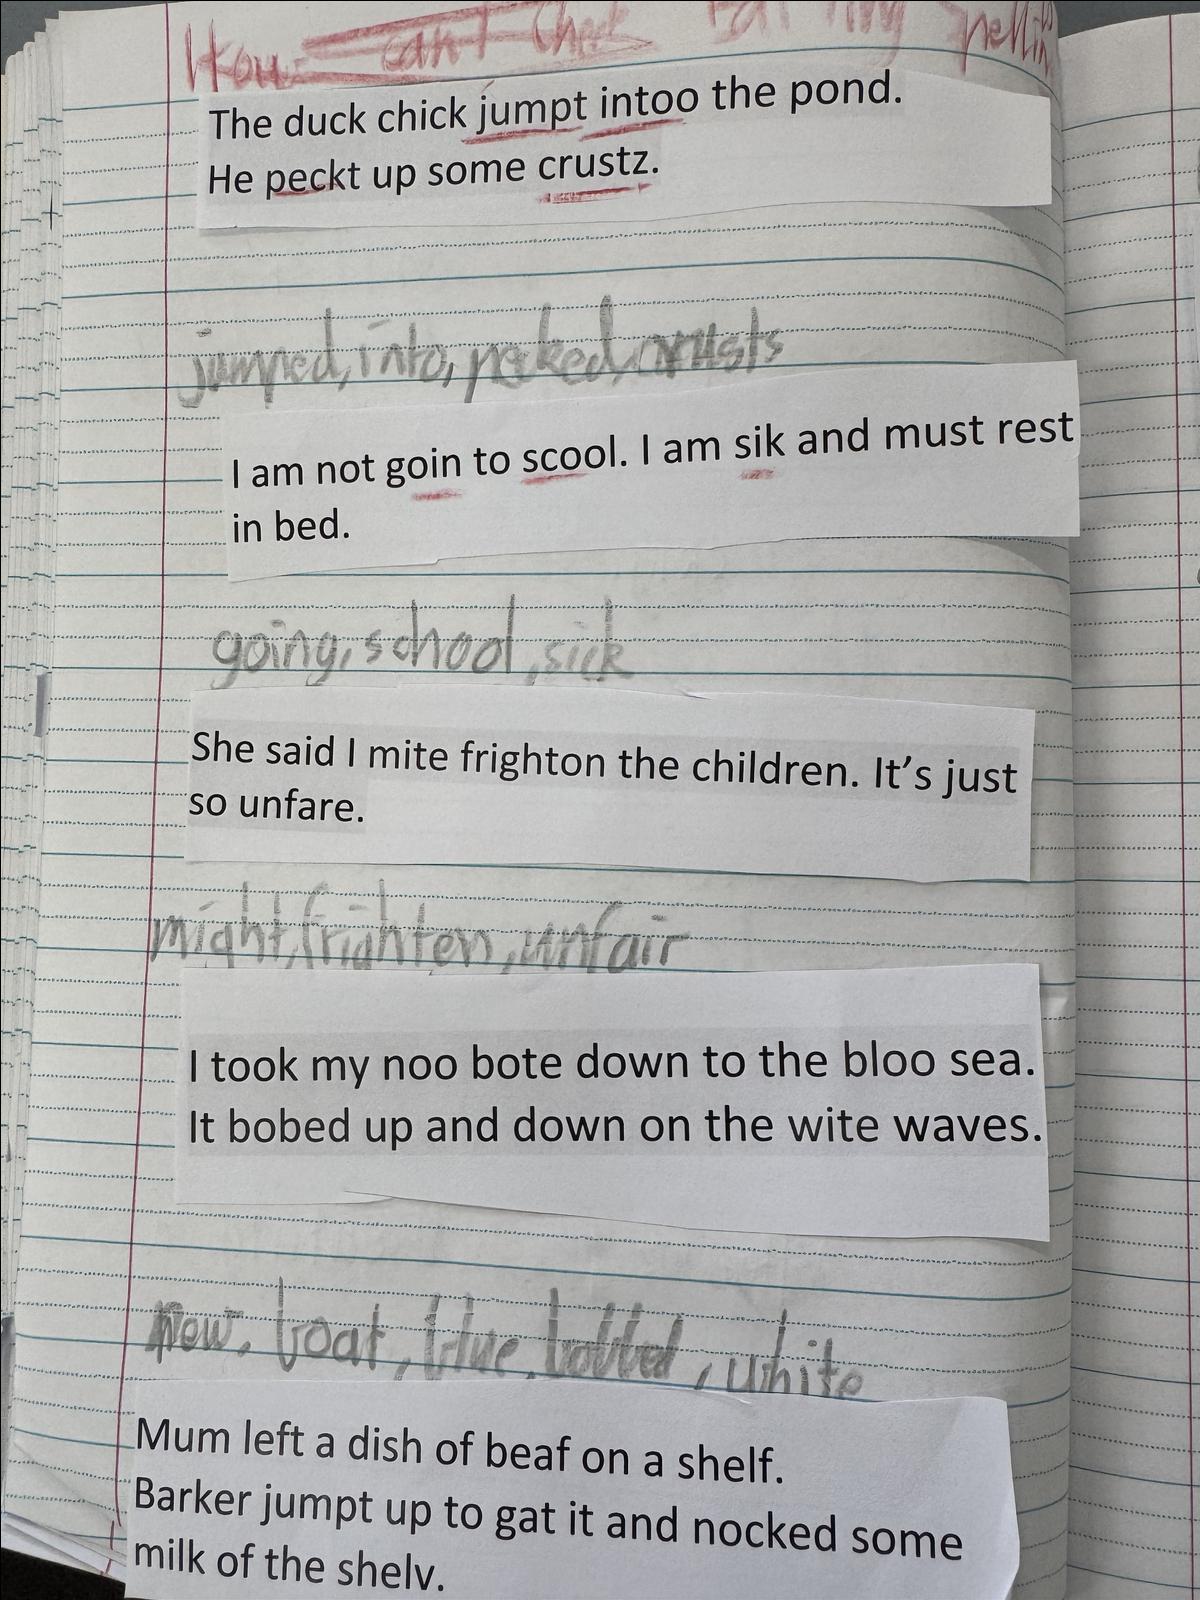 How can't Check
The duck chick jumpt intoo the pond.
He peckt up some crustz.
jumped, into, pecked, crusts
I am not goin to scool. I am sik and must rest
in bed.
going, school, sick
She said I mite frighton the children. It's just
so unfare.
might, frighten, unfair
I took my noo bote down to the bloo sea.
It bobed up and down on the wite waves.
new, boat, blue, bobbed, white
Mum left a dish of beaf on a shelf.
Barker jumpt up to gat it and nocked some
milk of the shelv.